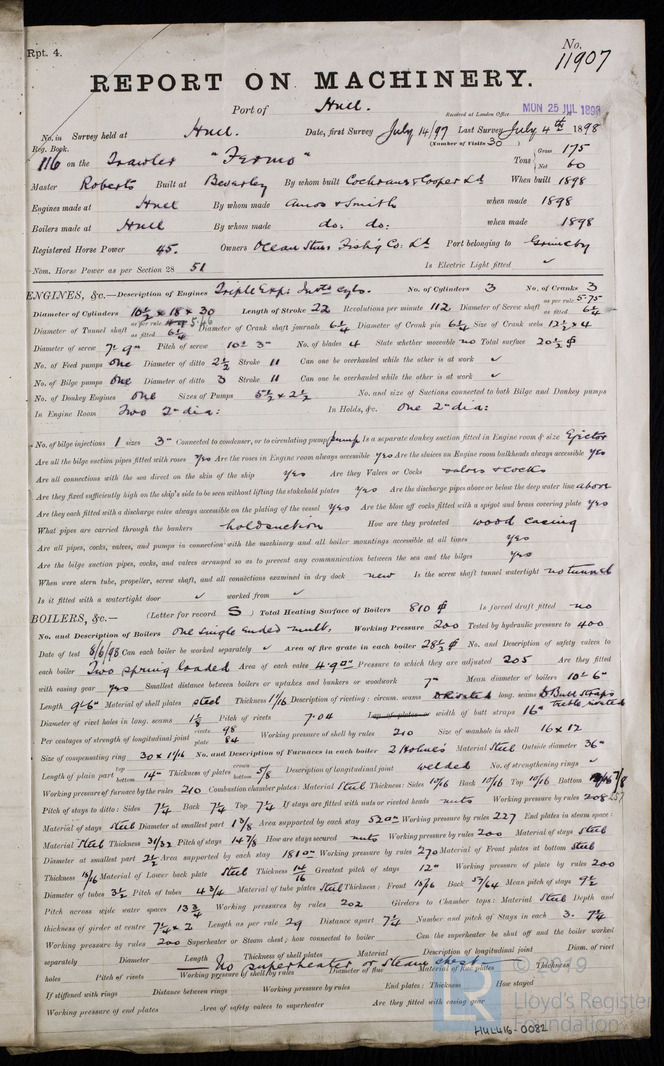 Rpt. 4.
No. 11907
REPORT ON MACHINERY.
Port of Hull.
Received at London Office MON 25 JUL 1898
No. in Reg. Book. Survey held at Hull. Date, first Survey July 14/97 Last Survey July 4th 1898
(Number of Visits 30 )
116 on the Trawler "Fermo" Tons Gross 175 Net 60
Master Roberts Built at Beverley By whom built Cochrane & Cooper Ld When built 1898
Engines made at Hull By whom made Amos & Smith when made 1898
Boilers made at Hull By whom made do. do: when made 1898
Registered Horse Power 45. Owners Ocean Stm Fishg Co: Ld Port belonging to Grimsby
Nom. Horse Power as per Section 28 51 Is Electric Light fitted ✓
ENGINES, &c.—Description of Engines Triple Exp: Invtd Cyls. No. of Cylinders 3 No. of Cranks 3
Diameter of Cylinders 10½ x 18 x 30 Length of Stroke 22 Revolutions per minute 112 Diameter of Screw shaft as per rule 5.75 as fitted 6¼
Diameter of Tunnel shaft as per rule 5.46 as fitted 6¼ Diameter of Crank shaft journals 6¼ Diameter of Crank pin 6¼ Size of Crank webs 12½ x 4
Diameter of screw 7' 9" Pitch of screw 10' 3" No. of blades 4 State whether moveable no Total surface 20½
No. of Feed pumps one Diameter of ditto 2½ Stroke 11 Can one be overhauled while the other is at work ✓
No. of Bilge pumps one Diameter of ditto 3 Stroke 11 Can one be overhauled while the other is at work ✓
No. of Donkey Engines one Sizes of Pumps 5½ x 2½ No. and size of Suctions connected to both Bilge and Donkey pumps
In Engine Room Two 2" dia: In Holds, &c. one 2" dia:
No. of bilge injections 1 sizes 3" Connected to condenser, or to circulating pump pump Is a separate donkey suction fitted in Engine room & size Ejector
Are all the bilge suction pipes fitted with roses yes Are the roses in Engine room always accessible yes Are the sluices on Engine room bulkheads always accessible yes
Are all connections with the sea direct on the skin of the ship yes Are they Valves or Cocks valves & cocks
Are they fixed sufficiently high on the ship's side to be seen without lifting the stokehold plates yes Are the discharge pipes above or below the deep water line above
Are they each fitted with a discharge valve always accessible on the plating of the vessel yes Are the blow off cocks fitted with a spigot and brass covering plate yes
What pipes are carried through the bunkers hold suction How are they protected wood casing
Are all pipes, cocks, valves, and pumps in connection with the machinery and all boiler mountings accessible at all times yes
Are the bilge suction pipes, cocks, and valves arranged so as to prevent any communication between the sea and the bilges yes
When were stern tube, propeller, screw shaft, and all connections examined in dry dock new Is the screw shaft tunnel watertight no tunnel
Is it fitted with a watertight door ✓ worked from ✓
BOILERS, &c.— (Letter for record S ) Total Heating Surface of Boilers 810 Is forced draft fitted no
No. and Description of Boilers One single ended mult. Working Pressure 200 Tested by hydraulic pressure to 400
Date of test 8/6/98 Can each boiler be worked separately ✓ Area of fire grate in each boiler 28½ No. and Description of safety valves to
each boiler Two spring loaded Area of each valve 4.90" Pressure to which they are adjusted 205 Are they fitted
with easing gear yes Smallest distance between boilers or uptakes and bunkers or woodwork 7" Mean diameter of boilers 10' 6"
Length 9'-6" Material of shell plates steel Thickness 1 1/16 Description of riveting: circum. seams D Riveted long. seams D Butt straps treble riveted
Diameter of rivet holes in long. seams 1⅛ Pitch of rivets 7.04 Lap of plates or width of butt straps 16"
Per centages of strength of longitudinal joint rivets 98 plate 84 Working pressure of shell by rules 210 Size of manhole in shell 16 x 12
Size of compensating ring 30 x 1 1/16 No. and Description of Furnaces in each boiler 2 Holmes Material Steel Outside diameter 36"
Length of plain part top bottom 14" Thickness of plates crown bottom 5/8 Description of longitudinal joint welded No. of strengthening rings ✓
Working pressure of furnace by the rules 210 Combustion chamber plates: Material Steel Thickness: Sides 10/16 Back 10/16 Top 10/16 Bottom 7/8
Pitch of stays to ditto: Sides 7¼ Back 7¼ Top 7¼ If stays are fitted with nuts or riveted heads nuts Working pressure by rules 208
Material of stays Steel Diameter at smallest part 1⅜ Area supported by each stay 52.0" Working pressure by rules 227 End plates in steam space:
Material Steel Thickness 31/32 Pitch of stays 14⅞ How are stays secured nuts Working pressure by rules 200 Material of stays Steel
Diameter at smallest part 2½ Area supported by each stay 181.0" Working pressure by rules 270 Material of Front plates at bottom steel
Thickness 13/16 Material of Lower back plate Steel Thickness 14/16 Greatest pitch of stays 12" Working pressure of plate by rules 200
Diameter of tubes 3½ Pitch of tubes 4¾ Material of tube plates Steel Thickness: Front 13/16 Back 53/64 Mean pitch of stays 9½
Pitch across wide water spaces 13¾ Working pressures by rules 202 Girders to Chamber tops: Material Steel Depth and
thickness of girder at centre 7¼ x 2 Length as per rule 29 Distance apart 7¼ Number and pitch of Stays in each 3. 7¼
Working pressure by rules 200 Superheater or Steam chest; how connected to boiler Can the superheater be shut off and the boiler worked
separately Diameter Length Thickness of shell plates Material Description of longitudinal joint Diam. of rivet
No superheater or steam chest
holes Pitch of rivets Working pressure of shell by rules Diameter of flue Material of flue plates Thickness
If stiffened with rings Distance between rings Working pressure by rules End plates: Thickness How stayed
Working pressure of end plates Area of safety valves to superheater Are they fitted with easing gear
© 2019
Lloyd's Register
Foundation
HUL416-0082